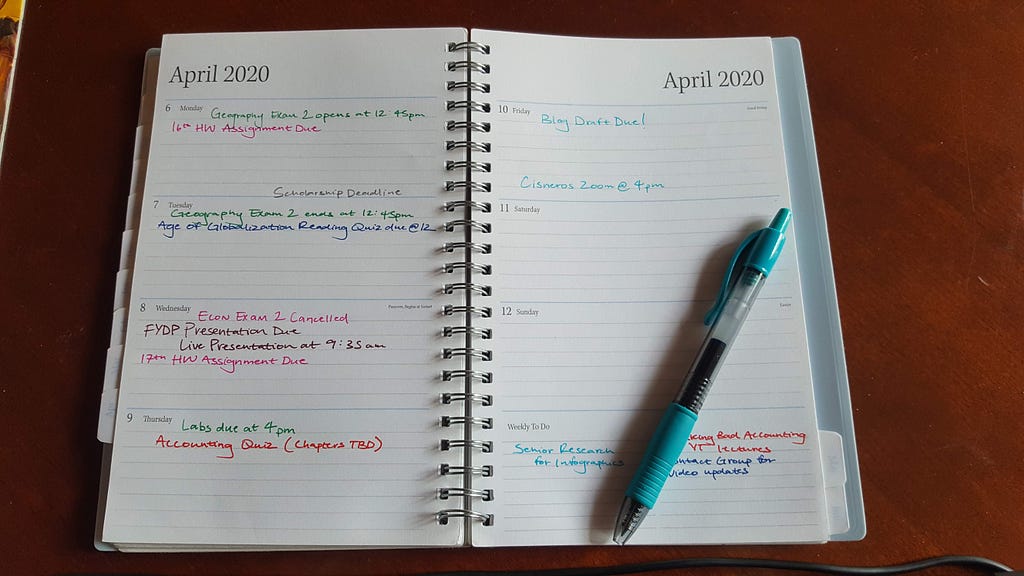 April 2020
6 Monday
Geography Exam 2 opens at 12:45pm
16th HW Assignment Due
Scholarship Deadline
7 Tuesday
Geography Exam 2 ends at 12:45pm
Age of Globalization Reading Quiz due @ 12
8 Wednesday
Econ Exam 2 Cancelled
FYDP Presentation Due
Live Presentation at 9:35am
17th HW Assignment Due
9 Thursday
Labs due at 4pm
Accounting Quiz (Chapters TBD)
April 2020
10 Friday
Good Friday
Blog Draft Due!
Cisneros Zoom @ 4pm
11 Saturday
12 Sunday
Easter
Weekly To Do
Senior Research
for Infographics
king Bad Accounting
YT lectures
ontact Group for
video updates